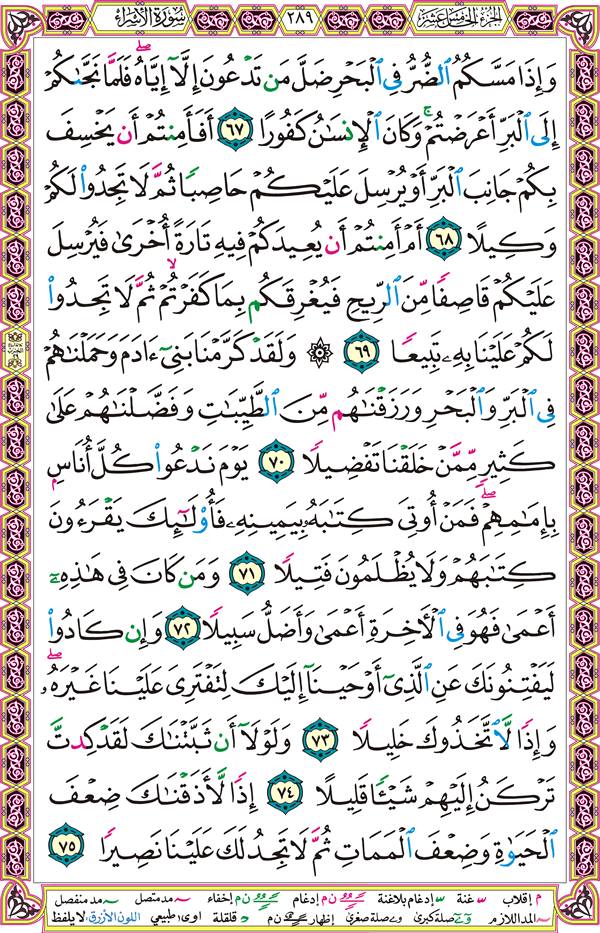 الجزء الخامس عشر ٢٨٩ سورة الإسراء
وَإِذَا مَسَّكُمُ ٱلضُّرُّ فِي ٱلۡبَحۡرِ ضَلَّ مَن تَدۡعُونَ إِلَّآ إِيَّاهُۖ فَلَمَّا نَجَّىٰكُمۡ
إِلَى ٱلۡبَرِّ أَعۡرَضۡتُمۡۚ وَكَانَ ٱلۡإِنسَٰنُ كَفُورًا ٦٧ أَفَأَمِنتُمۡ أَن يَخۡسِفَ
بِكُمۡ جَانِبَ ٱلۡبَرِّ أَوۡ يُرۡسِلَ عَلَيۡكُمۡ حَاصِبٗا ثُمَّ لَا تَجِدُواْ لَكُمۡ
وَكِيلًا ٦٨ أَمۡ أَمِنتُمۡ أَن يُعِيدَكُمۡ فِيهِ تَارَةً أُخۡرَىٰ فَيُرۡسِلَ
عَلَيۡكُمۡ قَاصِفٗا مِّنَ ٱلرِّيحِ فَيُغۡرِقَكُم بِمَا كَفَرۡتُمۡ ثُمَّ لَا تَجِدُواْ
لَكُمۡ عَلَيۡنَا بِهِۦ تَبِيعٗا ٦٩ ۞ وَلَقَدۡ كَرَّمۡنَا بَنِيٓ ءَادَمَ وَحَمَلۡنَٰهُمۡ
فِي ٱلۡبَرِّ وَٱلۡبَحۡرِ وَرَزَقۡنَٰهُم مِّنَ ٱلطَّيِّبَٰتِ وَفَضَّلۡنَٰهُمۡ عَلَىٰ
كَثِيرٖ مِّمَّنۡ خَلَقۡنَا تَفۡضِيلٗا ٧٠ يَوۡمَ نَدۡعُواْ كُلَّ أُنَاسِۭ
بِإِمَٰمِهِمۡۖ فَمَنۡ أُوتِيَ كِتَٰبَهُۥ بِيَمِينِهِۦ فَأُوْلَٰٓئِكَ يَقۡرَءُونَ
كِتَٰبَهُمۡ وَلَا يُظۡلَمُونَ فَتِيلٗا ٧١ وَمَن كَانَ فِي هَٰذِهِۦٓ
أَعۡمَىٰ فَهُوَ فِي ٱلۡأٓخِرَةِ أَعۡمَىٰ وَأَضَلُّ سَبِيلٗا ٧٢ وَإِن كَادُواْ
لَيَفۡتِنُونَكَ عَنِ ٱلَّذِيٓ أَوۡحَيۡنَآ إِلَيۡكَ لِتَفۡتَرِيَ عَلَيۡنَا غَيۡرَهُۥۖ
وَإِذٗا لَّٱتَّخَذُوكَ خَلِيلٗا ٧٣ وَلَوۡلَآ أَن ثَبَّتۡنَٰكَ لَقَدۡ كِدتَّ
تَرۡكَنُ إِلَيۡهِمۡ شَيۡـٔٗا قَلِيلًا ٧٤ إِذٗا لَّأَذَقۡنَٰكَ ضِعۡفَ
ٱلۡحَيَوٰةِ وَضِعۡفَ ٱلۡمَمَاتِ ثُمَّ لَا تَجِدُ لَكَ عَلَيۡنَا نَصِيرٗا ٧٥
م إقلاب غنة إدغام بلاغنة ن م إدغام ن م إخفاء مد متصل مد منفصل
المد اللازم صلة كبرى صلة صغرى إظهار ن م قلقلة اوى: طبيعي اللون الأزرق: لا يلفظ